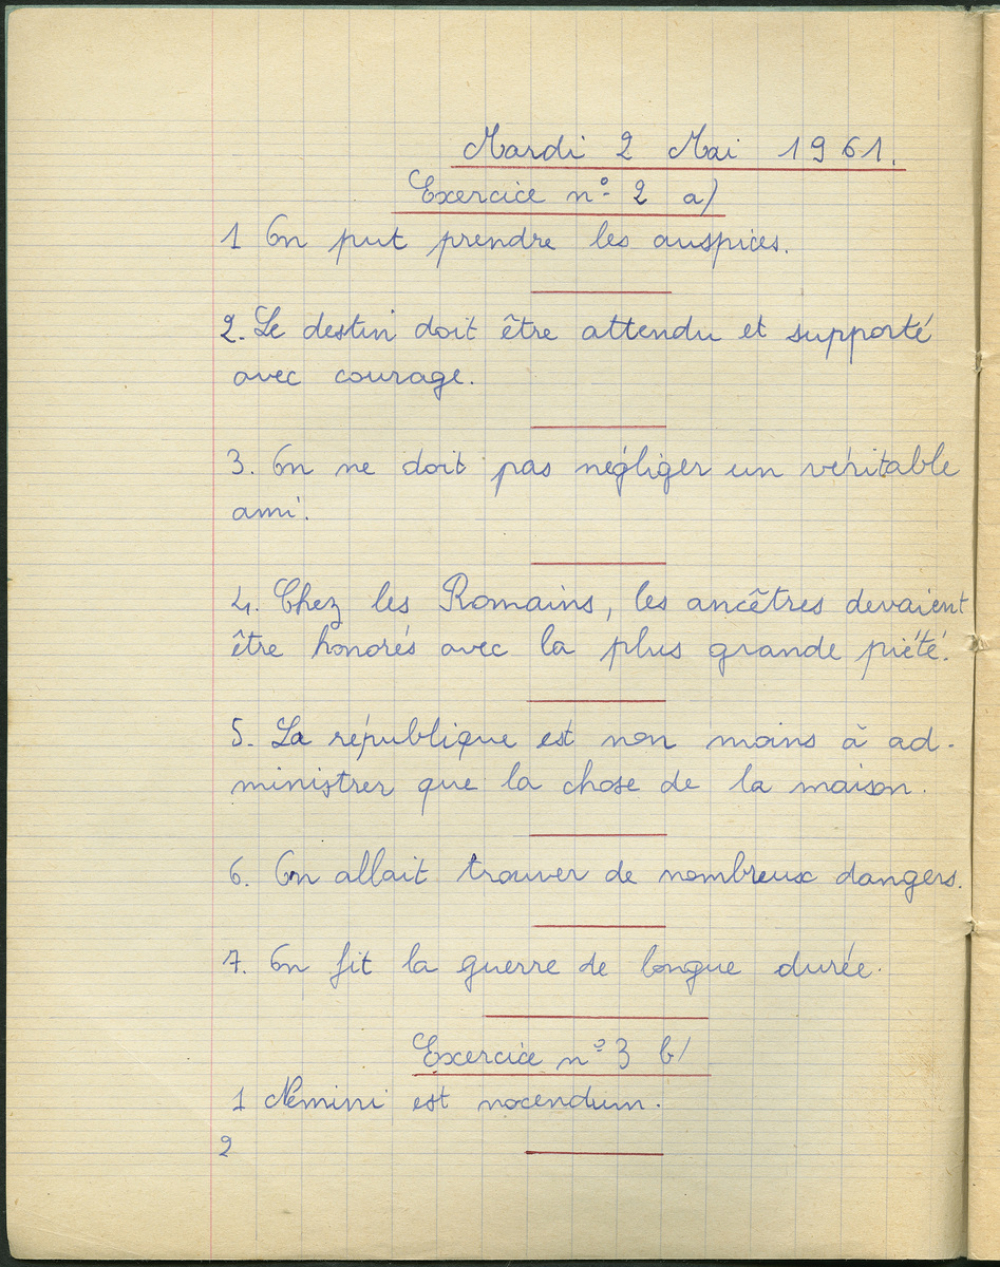 Mardi 2 Mai 1961.
Exercice n° 2 a)
1 On put prendre les auspices.
2. Le destin doit être attendu et supporté
avec courage.
3. On ne doit pas négliger un véritable
ami.
4. Chez les Romains, les ancêtres devaient
être honorés avec la plus grande piété.
5. La république est non moins à ad-
ministrer que la chose de la maison.
6. On allait trouver de nombreux dangers.
7. On fit la guerre de longue durée.
Exercice n° 3 b/
1 Nemini est nocendum.
2